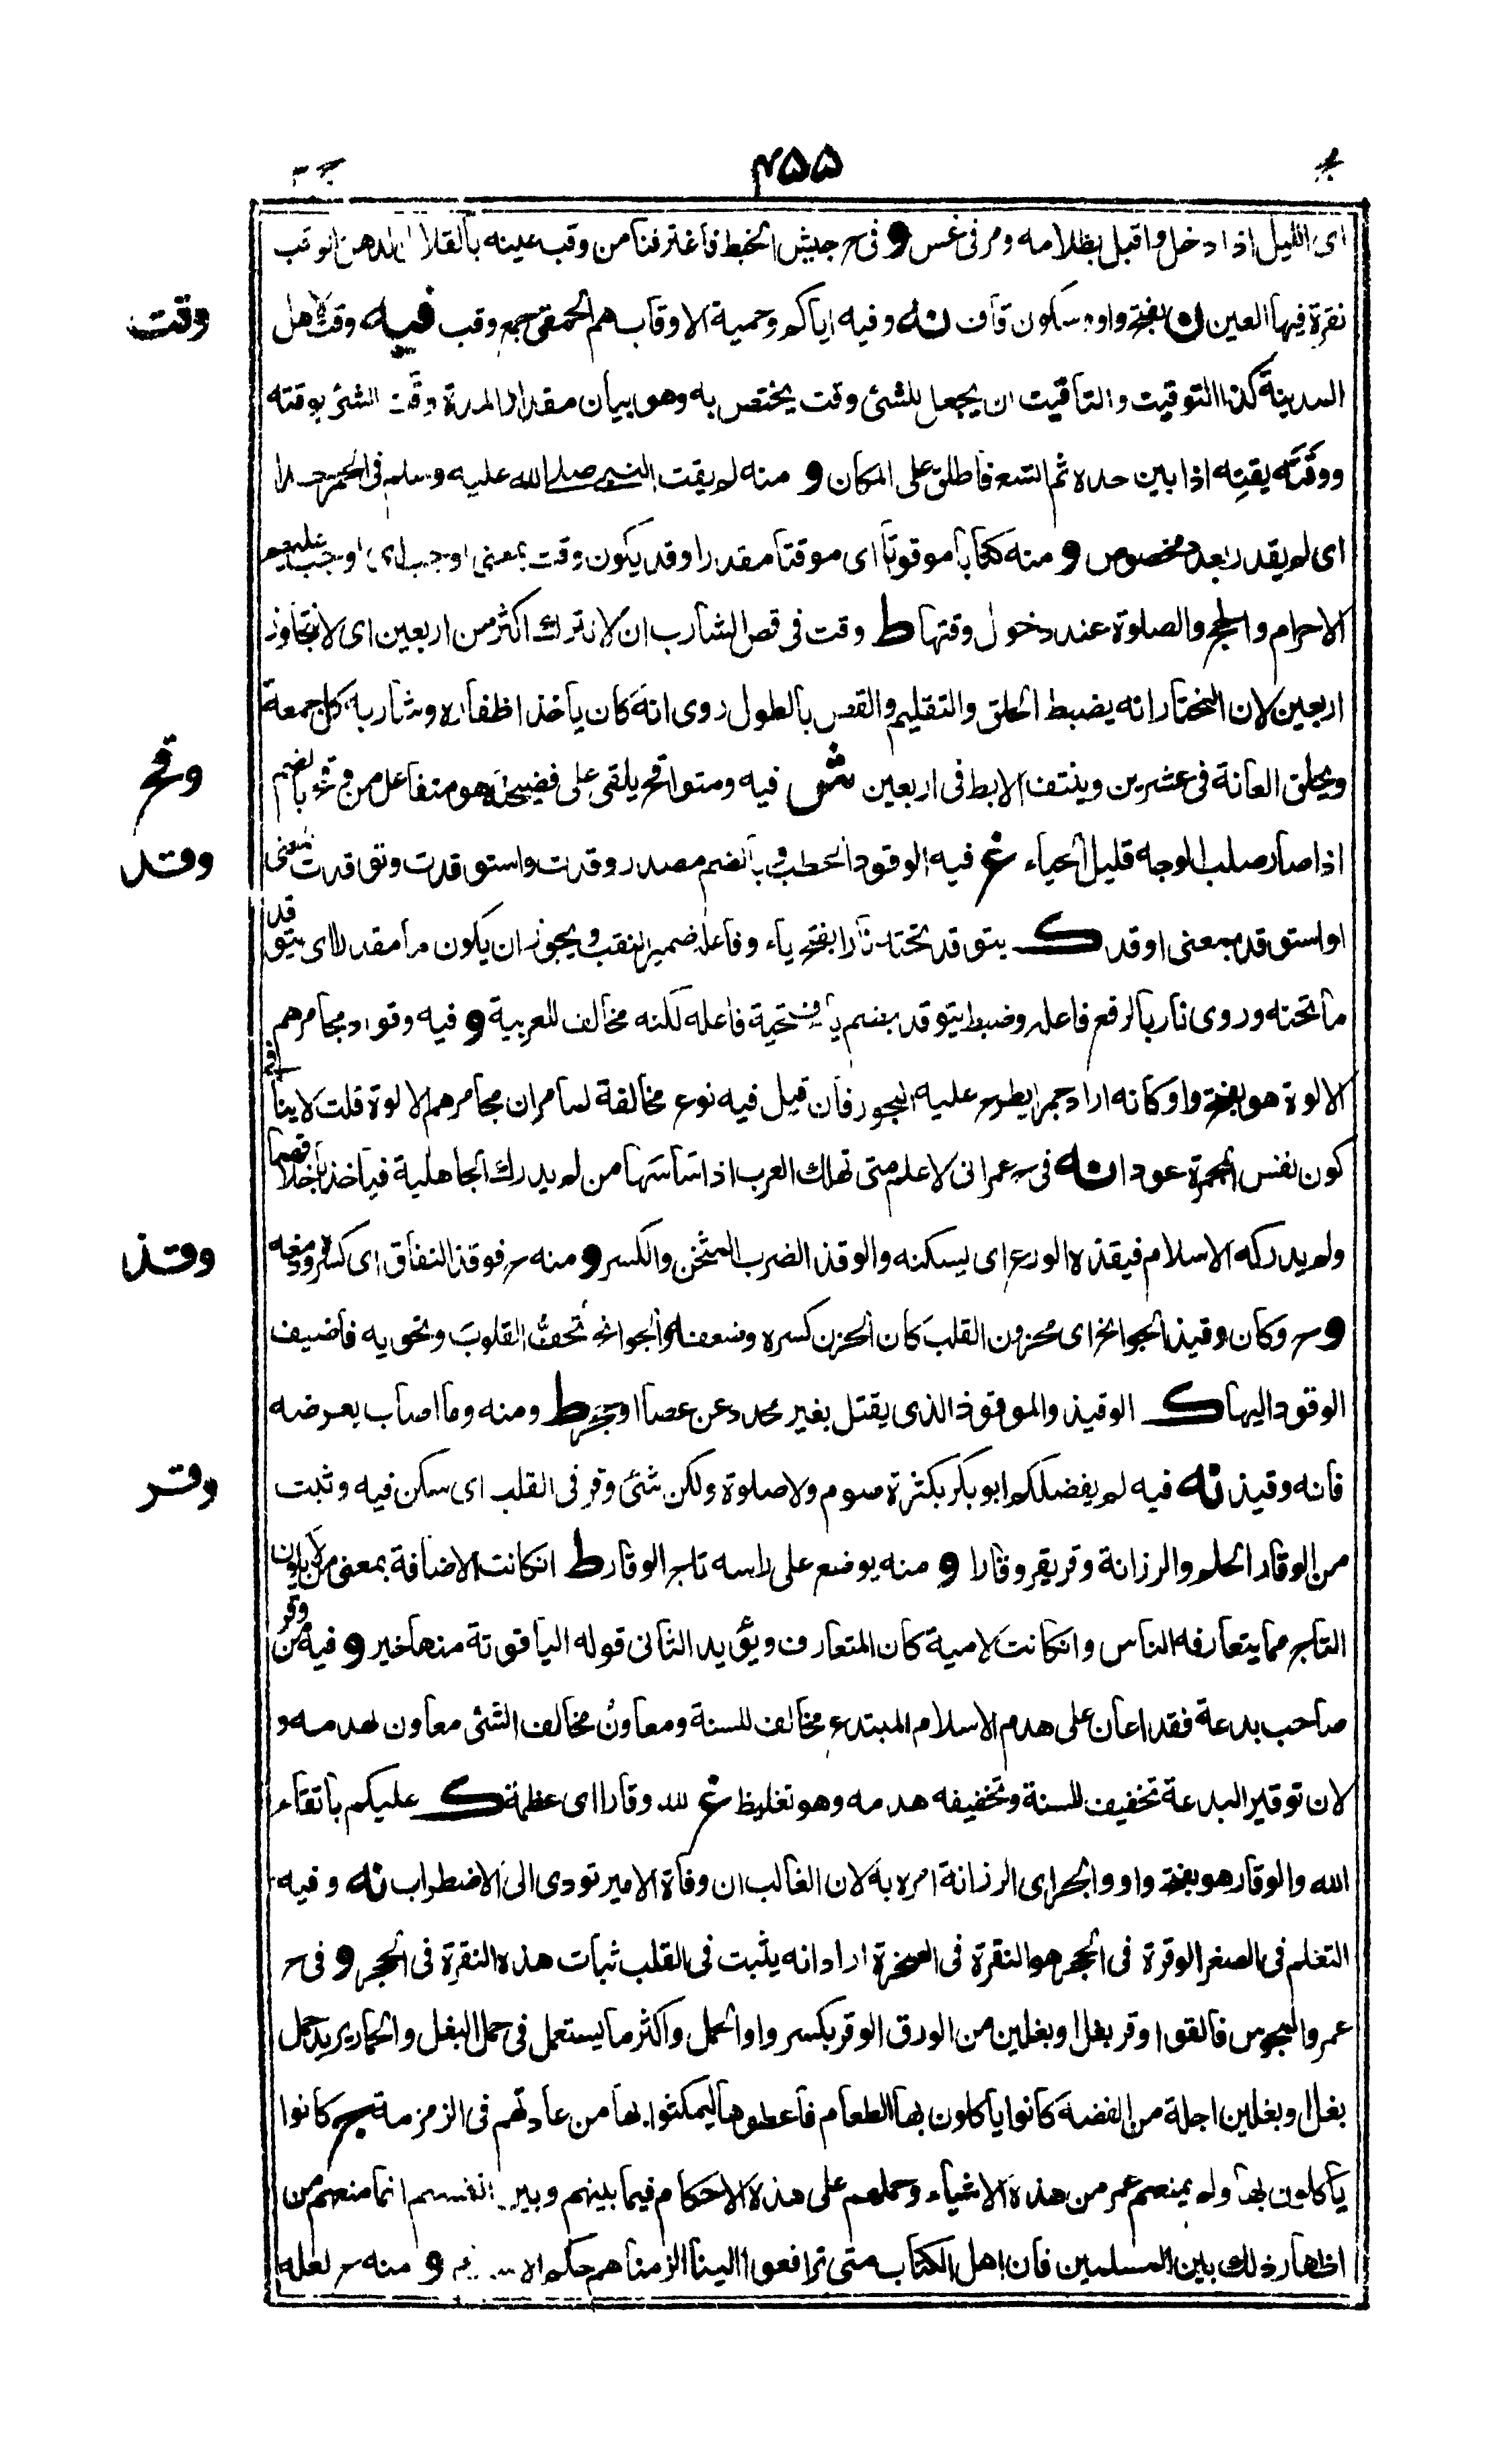 ۴۵۵
اى الليل اذا دخل واقبل بظلامه ومر فى غس و فى ح جيش الخبط فاغترفنا من وقب عينه بالقلال الدهن الوقب
نقرة فيها العين ن بفتح واو وسكون قاف نه وفيه اياكم وحمية الاوقاب هم الحمقى جمع وقب فيه وقت لاهل
وقت
المدينة كذا التوقيت والتاقيت ان يجعل للشئ وقت يختص به وهو بيان مقدار المدة وقّت الشئ يوقته
ووقَته يقِته اذا بين حده ثم اتسع فاطلق على المكان و منه لم يقت النبى صلى الله عليه وسلم فى الخمر حدا
اى لم يقدر بعدد مخصوص و منه كتابا موقوتا اى موقتا مقدرا وقد يكون وقت بمعنى اوجب اى اوجب عليهم
الاحرام والحج والصلوة عند دخول وقتها ط وقت فى قص الشارب ان لا نترك اكثر من اربعين اى لا نتجاوز
اربعين لان المختار انه يضبط الحلق والتقليم والقص بالطول روى انه كان ياخذ اظفاره وشاربه كل جمعة
ويحلق العانة فى عشرين وينتف الابط فى اربعين ش فيه ومتواقح يلقى على فضيحته هو متفاعل من وقح بالضم
وقح
اذا صار صلب الوجه قليل الحياء غ فيه الوقود الحطب و بالضم مصدر وقدت واستوقدت وتوقدت بمعنى
وقد
او استوقد بمعنى اوقد ك يتوقد تحته نارا بفتح ياء وفاعله ضمير النقب ويجوز ان يكون ما مقدرا اى يتوقد
ما تحته وروى نار بالرفع فاعله وضبط يتوقد بضم ياء فتحية فاعله لكنه مخالف للعربية و فيه وقود مجامرهم
الالوة هو بفتح واو كانه اراد جمرا يطرح عليه البخور فان قيل فيه نوع مخالفة لما مر ان مجامرهم الالوة قلت لا ينافى
كون نفس المجمرة عودا نه فى ح عمر انى لاعلم متى تهلك العرب اذا ساسها من لم يدرك الجاهلية فياخذ باخلاقها
ولم يدركه الاسلام فيقذه الورع اى يسكنه والوقذ الضرب المثخن والكسر و منه ح فوقذ النفاق اى كسره ودمغه
وقذ
و ح وكان وقيذ الجوانح اى محزون القلب كان الحزن كسره وضعفه والجوانح تحفّ القلوب وتحويه فاضيف
الوقود اليها ك الوقيذ والموقوذ الذى يقتل بغير محدد عن عصا او حجر ط ومنه وما اصاب بعرضه
فانه وقيذ نه فيه لم يفضلكم ابو بكر بكثرة صوم ولا صلوة ولكن شئ وقر فى القلب اى سكن فيه وثبت
وقر
من الوقار الحلم والرزانة وقر يقر وقارا و منه يوضع على راسه تاج الوقار ط ان كانت الاضافة بمعنى من لا يكون
التاج مما يتعارفه الناس وان كانت لامية كان المتعارف ويؤيد الثانى قوله الياقوتة منها خير و فيه من وقر
صاحب بدعة فقد اعان على هدم الاسلام المبتدع مخالف للسنة ومعاون مخالف الشئ معاون لهدمه و
لان توقير البدعة تخفيف للسنة وتخفيفه هدمه وهو تغليظ غ لله وقارا اى عظمة ك عليكم باتقاء
الله والوقار هو بفتح واو والجر اى الرزانة امره به لان الغالب ان وفاة الامير تودى الى الاضطراب نه و فيه
التعلم فى الصغر الوقرة فى الحجر هو النقرة فى الصخرة اراد انه يثبت فى القلب ثبات هذه النقرة فى الحجر و فى ح
عمر والمجوس فالقوا وقر بغل او بغلين من الورق الوقر بكسر واو الحمل واكثر ما يستعمل فى حمل البغل والحمار يريد حمل
بغل او بغلين اجلة من الفضة كانوا ياكلون بها الطعام فاعطوها ليمكنوا بها من عادتهم فى الزمزمة ج كانوا
ياكلون بها ولم يمنعهم عمر من هذه الاشياء وحملهم على هذه الاحكام فيما بينهم وبين انفسهم انما منعهم من
اظهار ذلك بين المسلمين فان اهل الكتاب متى ترافعوا الينا الزمناهم حكم و منه ح لعله